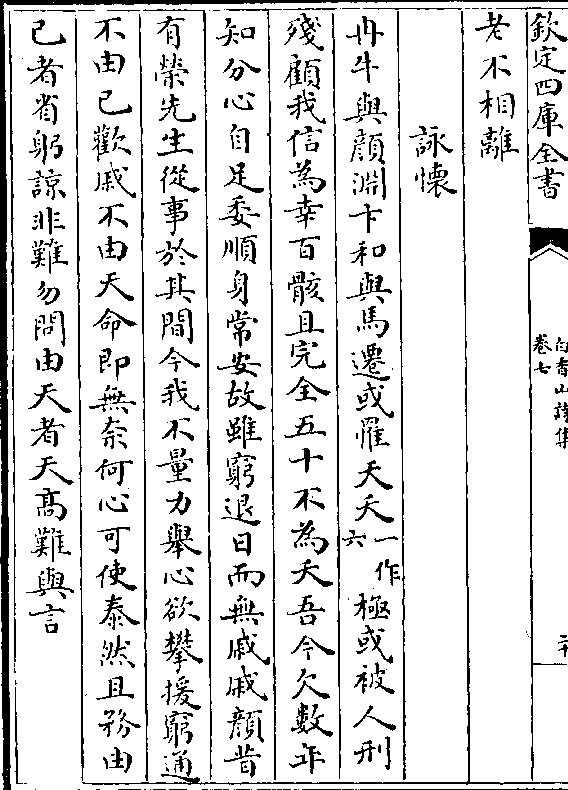 欽定四庫全書
白香山詩集
卷七
老不相離
詠懷
冉牛與顔淵卞和與馬遷或罹天夭一作六極或被人刑
殘顧我信為幸百骸且完全五十不為夭吾今欠數年
知分心自足委順身常安故雖窮退日而無戚戚顔昔
有榮先生從事於其間今我不量力舉心欲攀援窮通
不由已歡戚不由天命即無奈何心可使泰然且務由
已者省躬諒非難勿問由天者天髙難與言